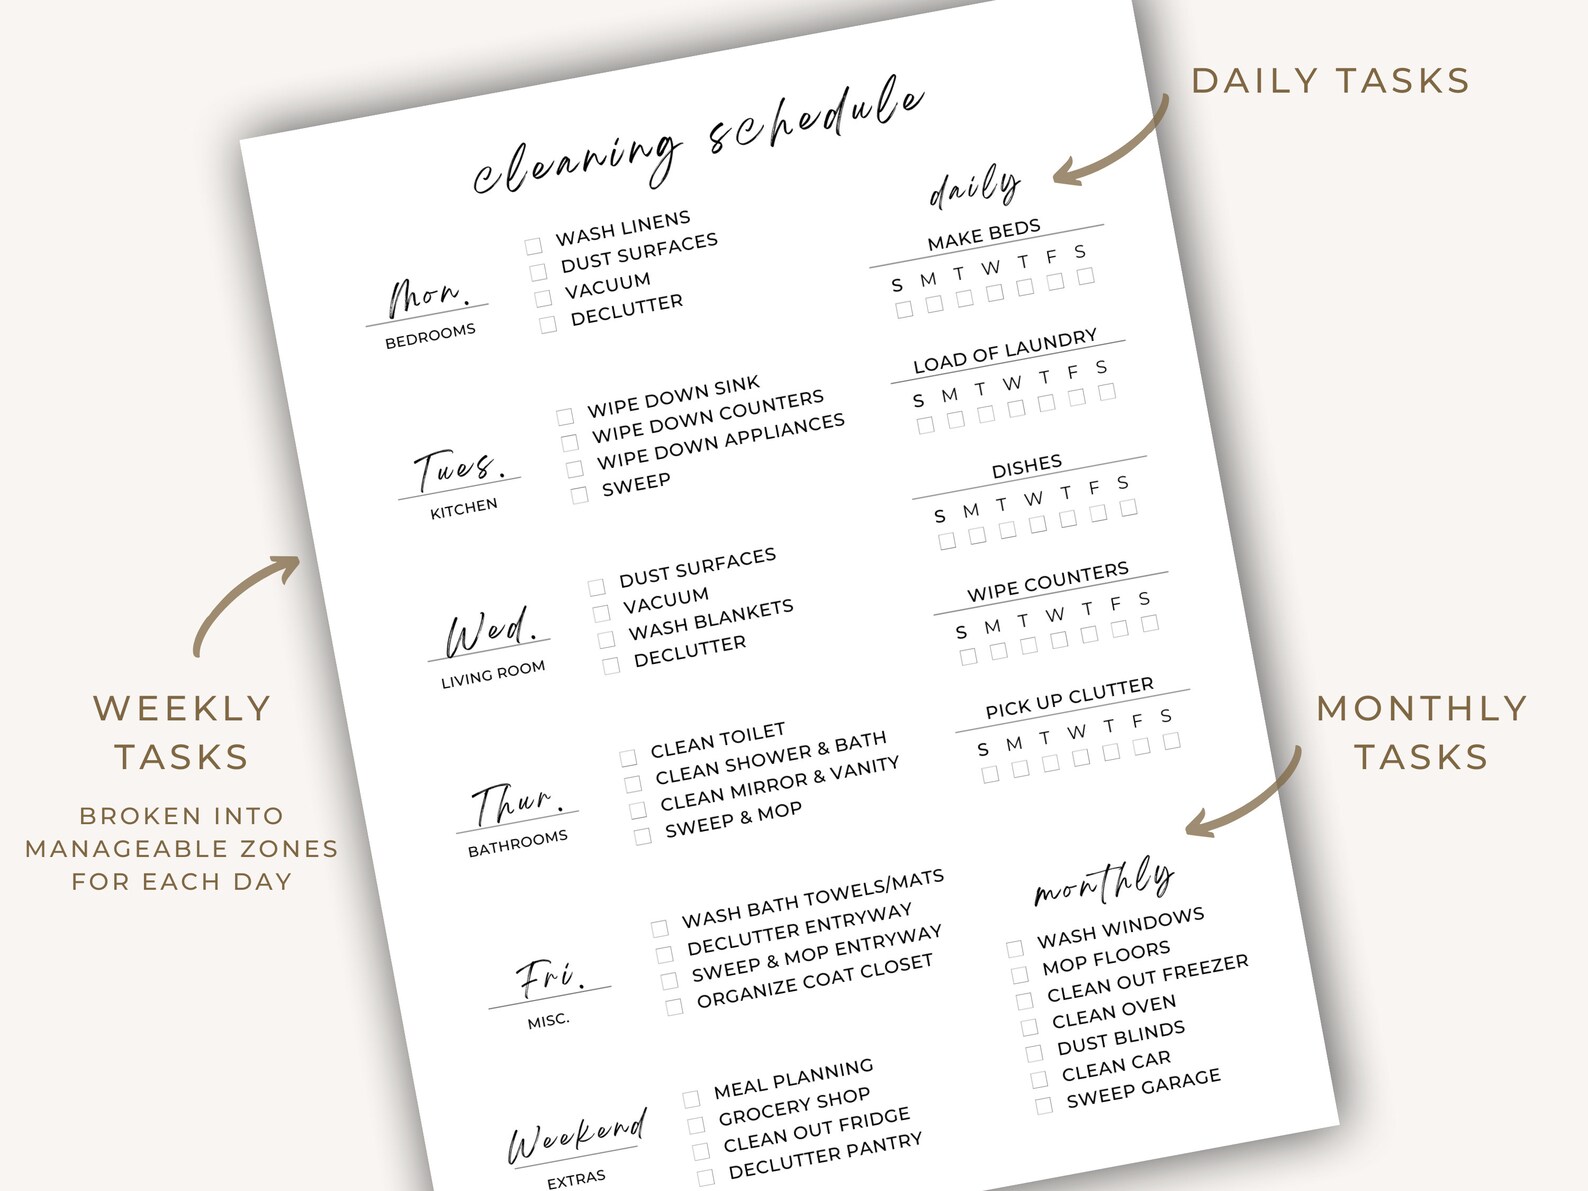 cleaning schedule
Mon.
BEDROOMS
WASH LINENS
DUST SURFACES
VACUUM
DECLUTTER
Tues.
KITCHEN
WIPE DOWN SINK
WIPE DOWN COUNTERS
WIPE DOWN APPLIANCES
SWEEP
Wed.
LIVING ROOM
DUST SURFACES
VACUUM
WASH BLANKETS
DECLUTTER
Thur.
BATHROOMS
CLEAN TOILET
CLEAN SHOWER & BATH
CLEAN MIRROR & VANITY
SWEEP & MOP
Fri.
MISC.
WASH BATH TOWELS/MATS
DECLUTTER ENTRYWAY
SWEEP & MOP ENTRYWAY
ORGANIZE COAT CLOSET
Weekend
EXTRAS
MEAL PLANNING
GROCERY SHOP
CLEAN OUT FRIDGE
DECLUTTER PANTRY
daily
MAKE BEDS
S M T W T F S
LOAD OF LAUNDRY
S M T W T F S
DISHES
S M T W T F S
WIPE COUNTERS
S M T W T F S
PICK UP CLUTTER
S M T W T F S
monthly
WASH WINDOWS
MOP FLOORS
CLEAN OUT FREEZER
CLEAN OVEN
DUST BLINDS
CLEAN CAR
SWEEP GARAGE
DAILY TASKS
WEEKLY
TASKS
BROKEN INTO
MANAGEABLE ZONES
FOR EACH DAY
MONTHLY
TASKS